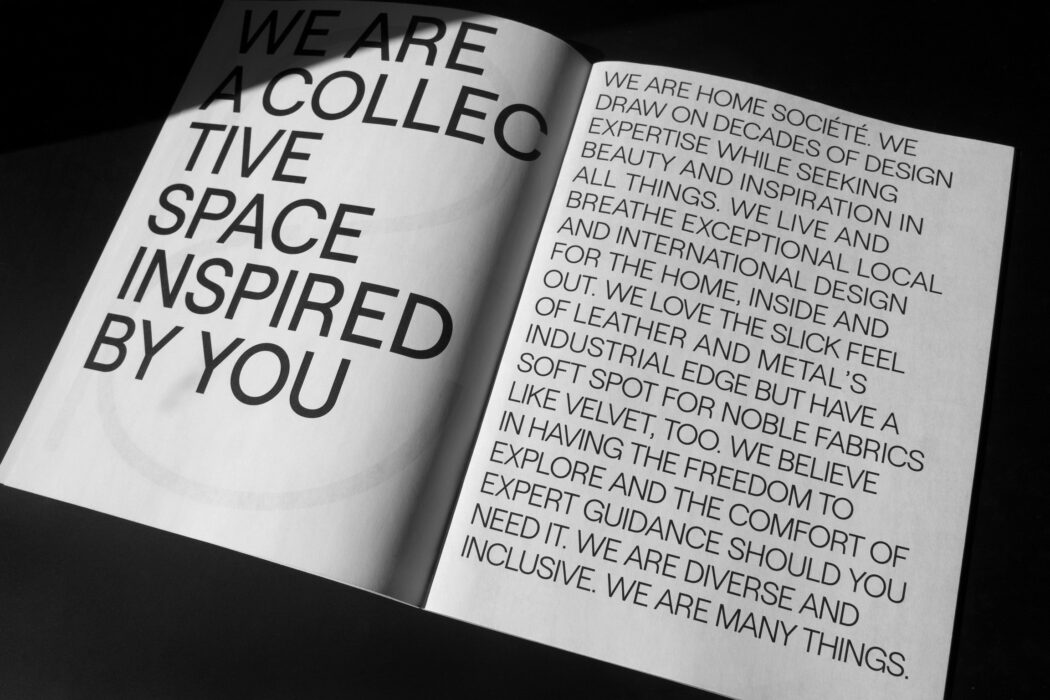 WE ARE
A COLLEC
TIVE
SPACE
INSPIRED
BY YOU
WE ARE HOME SOCIÉTÉ. WE
DRAW ON DECADES OF DESIGN
EXPERTISE WHILE SEEKING
BEAUTY AND INSPIRATION IN
ALL THINGS. WE LIVE AND
BREATHE EXCEPTIONAL LOCAL
AND INTERNATIONAL DESIGN
FOR THE HOME, INSIDE AND
OUT. WE LOVE THE SLICK FEEL
OF LEATHER AND METAL'S
INDUSTRIAL EDGE BUT HAVE A
SOFT SPOT FOR NOBLE FABRICS
LIKE VELVET, TOO. WE BELIEVE
IN HAVING THE FREEDOM TO
EXPLORE AND THE COMFORT OF
EXPERT GUIDANCE SHOULD YOU
NEED IT. WE ARE DIVERSE AND
INCLUSIVE. WE ARE MANY THINGS.